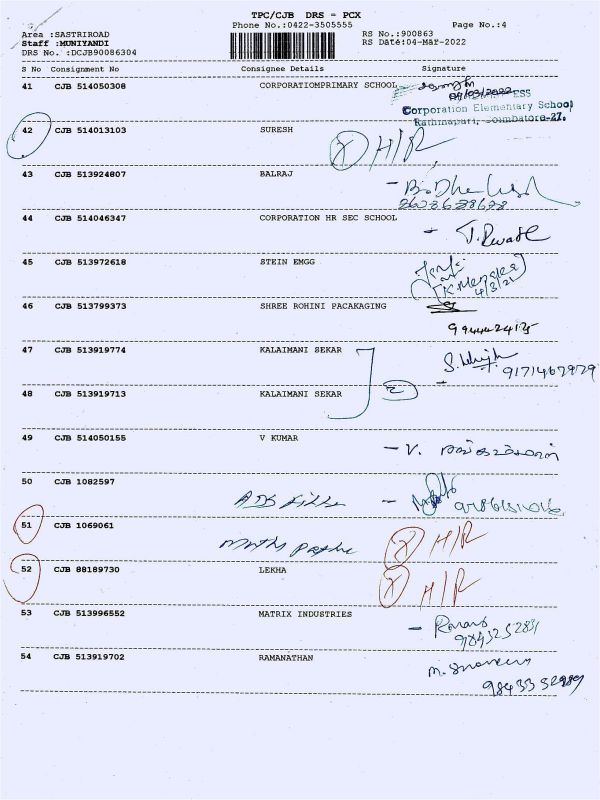 TPC/CJB DRS - PCX
Phone No.:0422-3505555 Page No.:4
Area :SASTRIROAD RS No.:900863
Staff :MUNIYANDI RS Date:04-Mar-2022
DRS No. :DCJB90086304
S No Consignment No Consignee Details Signature
41 CJB 514050308 CORPORATIOMPRIMARY SCHOOL
04/03/2022 ESS
Corporation Elementary School
Rathinapuri, Coimbatore-27.
42 CJB 514013103 SURESH X H/R
43 CJB 513924807 BALRAJ
44 CJB 514046347 CORPORATION HR SEC SCHOOL
45 CJB 513972618 STEIN EMGG
4/3/21
46 CJB 513799373 SHREE ROHINI PACAKAGING
47 CJB 513919774 KALAIMANI SEKAR
9171462979
2
48 CJB 513919713 KALAIMANI SEKAR
49 CJB 514050155 V KUMAR - V.
50 CJB 1082597
51 CJB 1069061 X H/R
52 CJB 88189730 LEKHA X H/R
53 CJB 513996552 MATRIX INDUSTRIES
54 CJB 513919702 RAMANATHAN